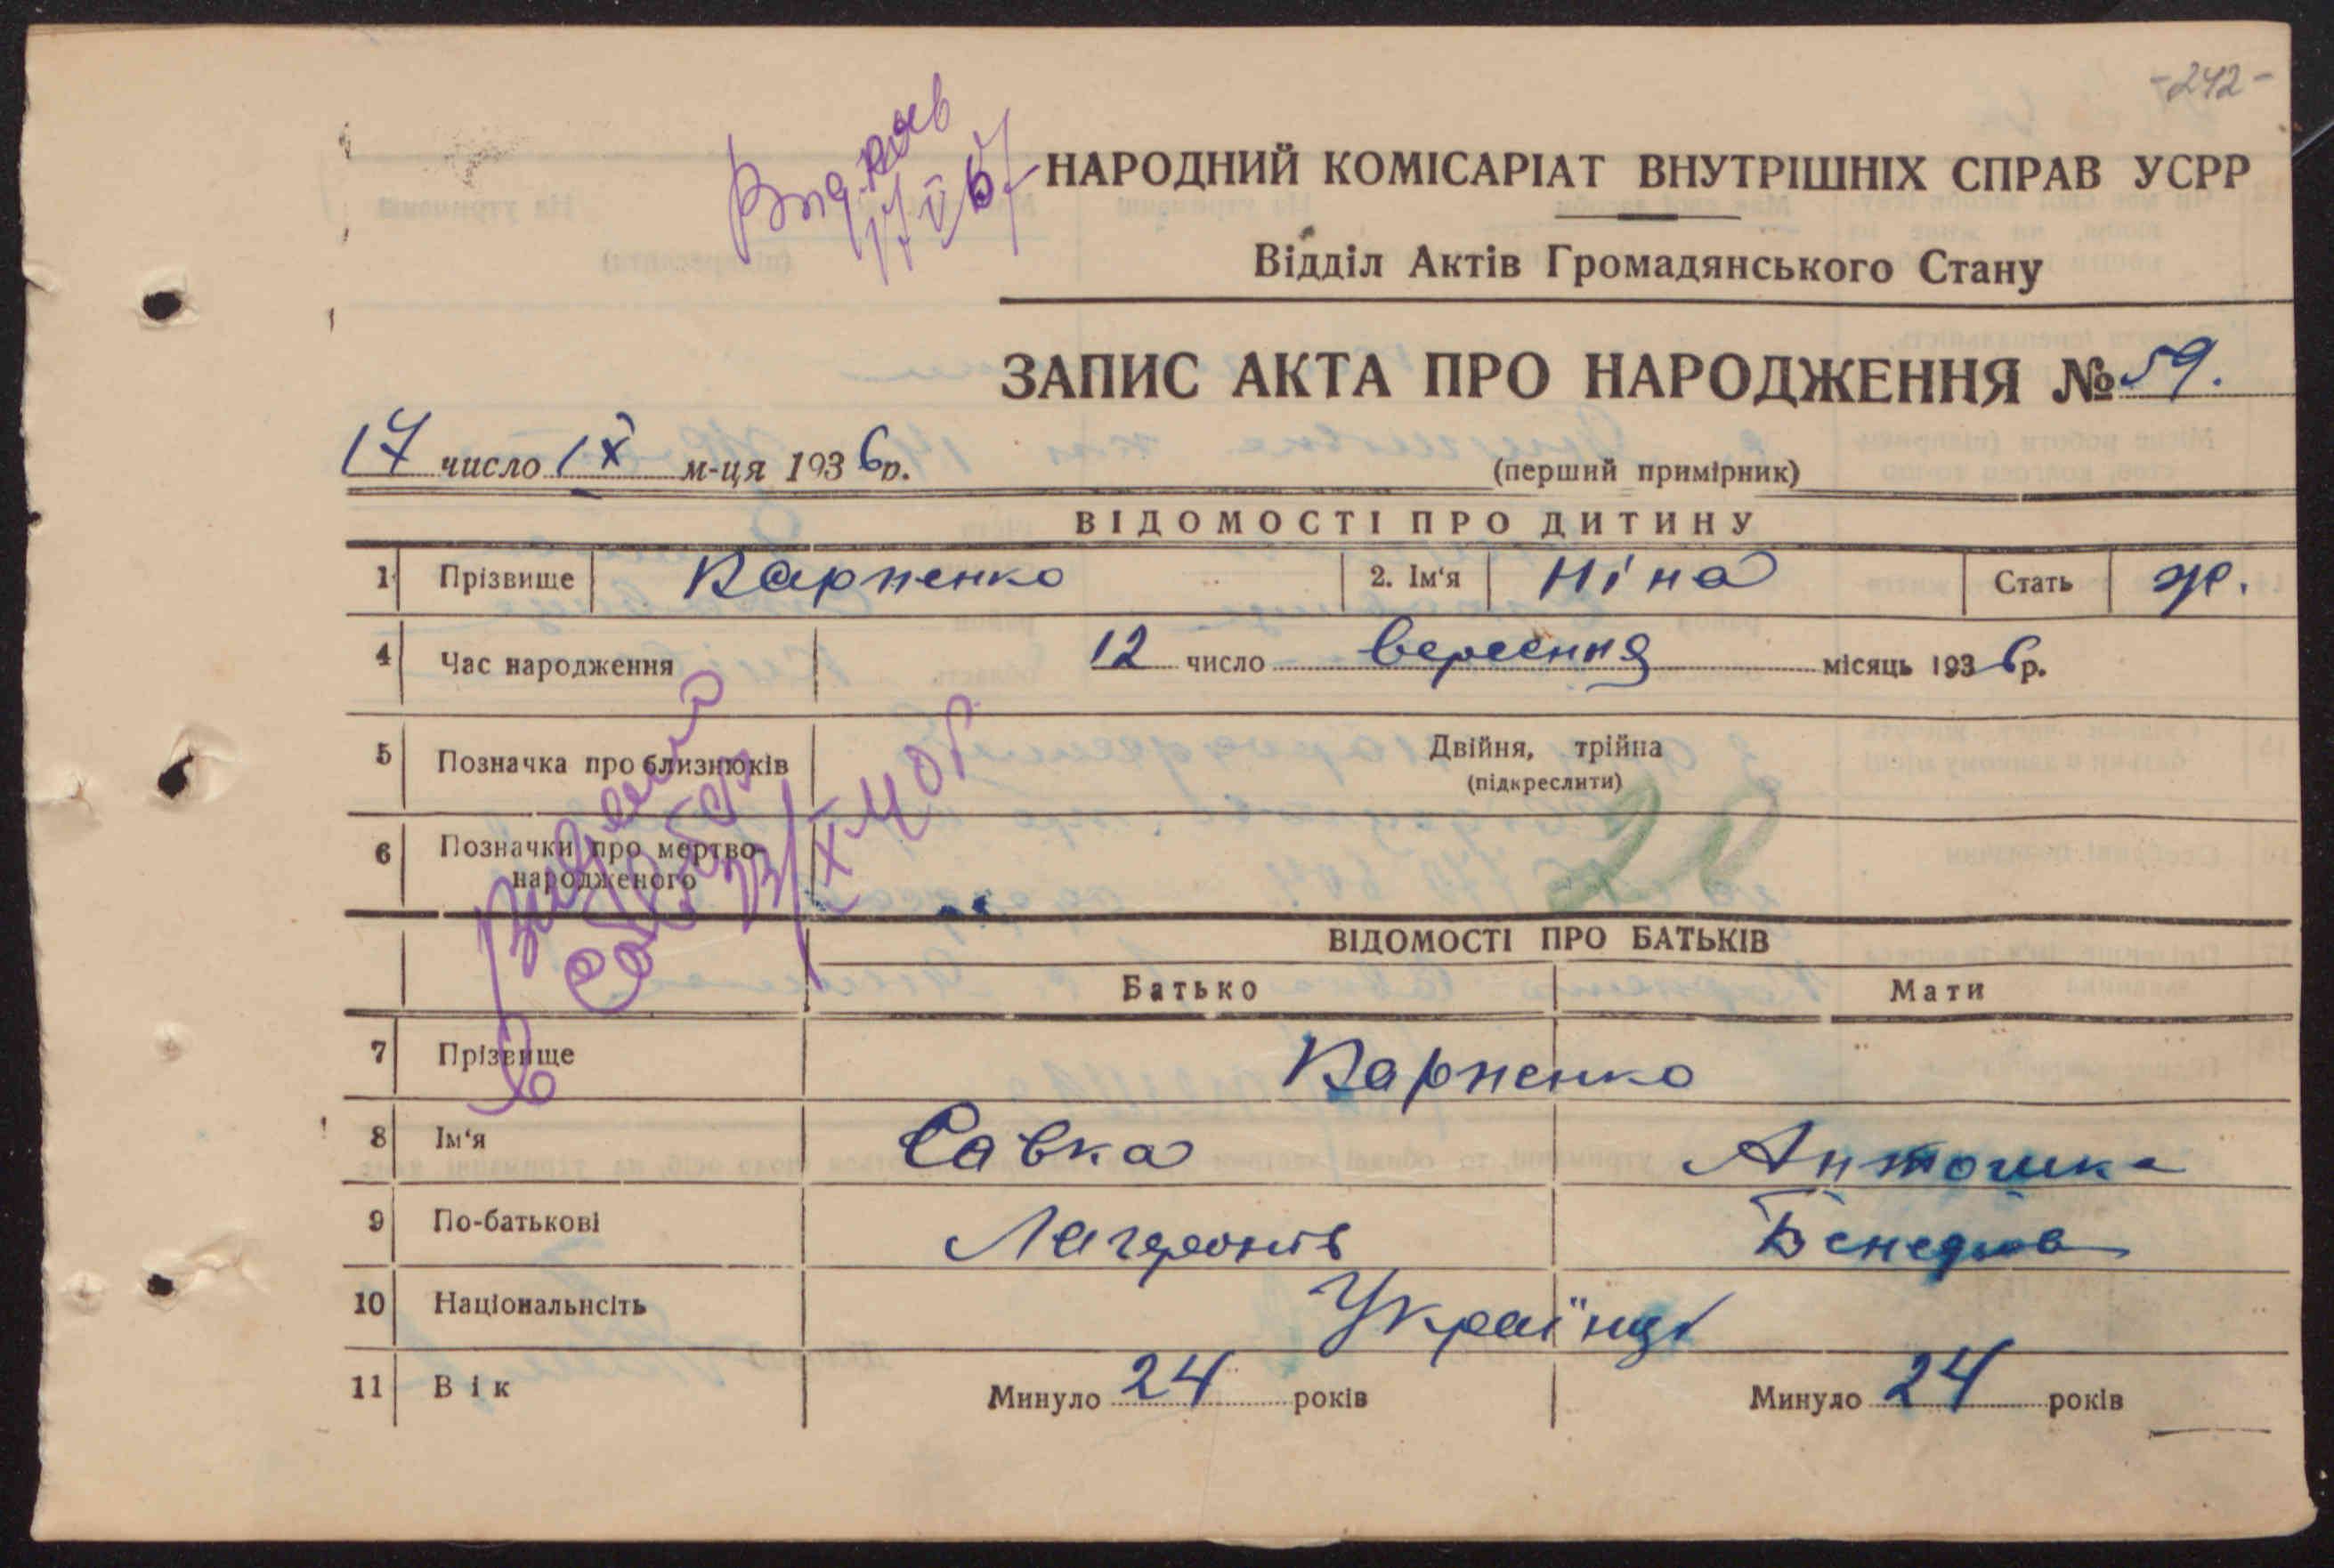 -242-
НАРОДНИЙ КОМІСАРІАТ ВНУТРІШНІХ СПРАВ УСРР
Відділ Актів Громадянського Стану
ЗАПИС АКТА ПРО НАРОДЖЕННЯ № 59.
17 число IX м-ця 1936р.
(перший примірник)
ВІДОМОСТІ ПРО ДИТИНУ
1 Прізвище Карпенко 2. Ім'я Ніна Стать ж.
4 Час народження 12 число вересня місяць 1936р.
5 Позначка про близнюків Двійня, трійна
(підкреслити)
6 Позначки про мертво-
народженого
ВІДОМОСТІ ПРО БАТЬКІВ
Батько Мати
7 Прізвище Карпенко
8 Ім'я Савка Антошка
9 По-батькові
10 Національнсіть Українці
11 Вік Минуло 24 років Минуло 24 років